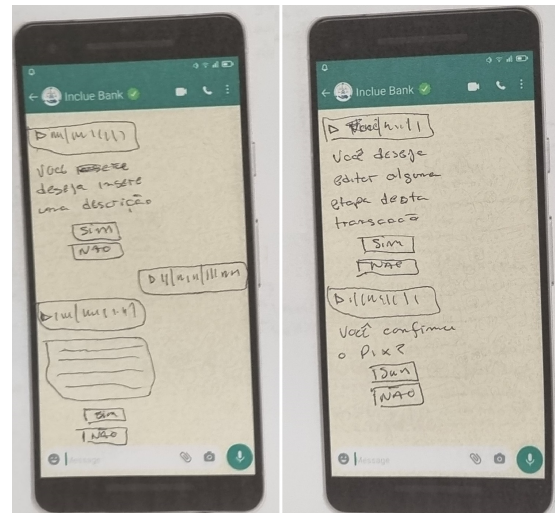 Inclue Bank
Você
deseja insere
uma descrição
SIM
NÃO
SIM
NÃO
Message
Inclue Bank
Você deseja
editar alguma
etapa desta
transacaõ
SIM
NÃO
Você confirma
o Pix?
SIM
NÃO
Message